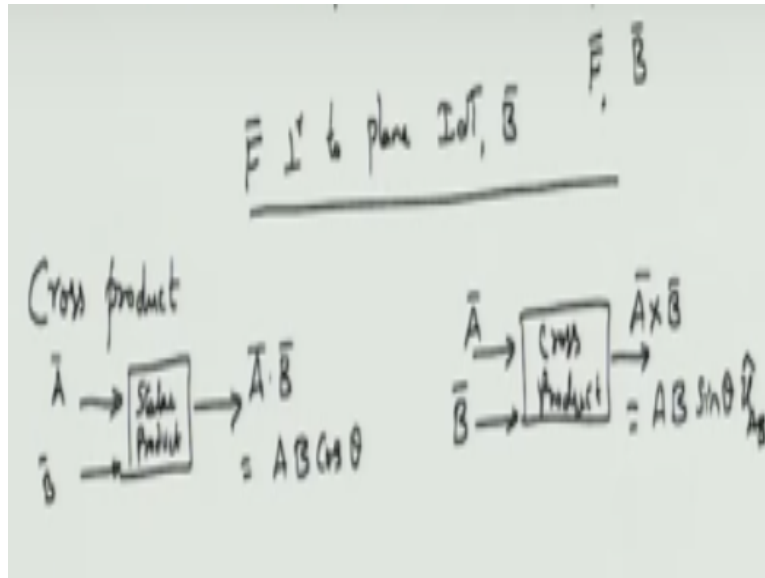 F̄, B̄
F̄ ⊥r to plane Idl̄, B̄
Cross product
Ā
B̄
Scalar
Product
Ā · B̄
= AB Cos θ
Ā
B̄
Cross
Product
Ā × B̄
= AB Sin θ û_AB